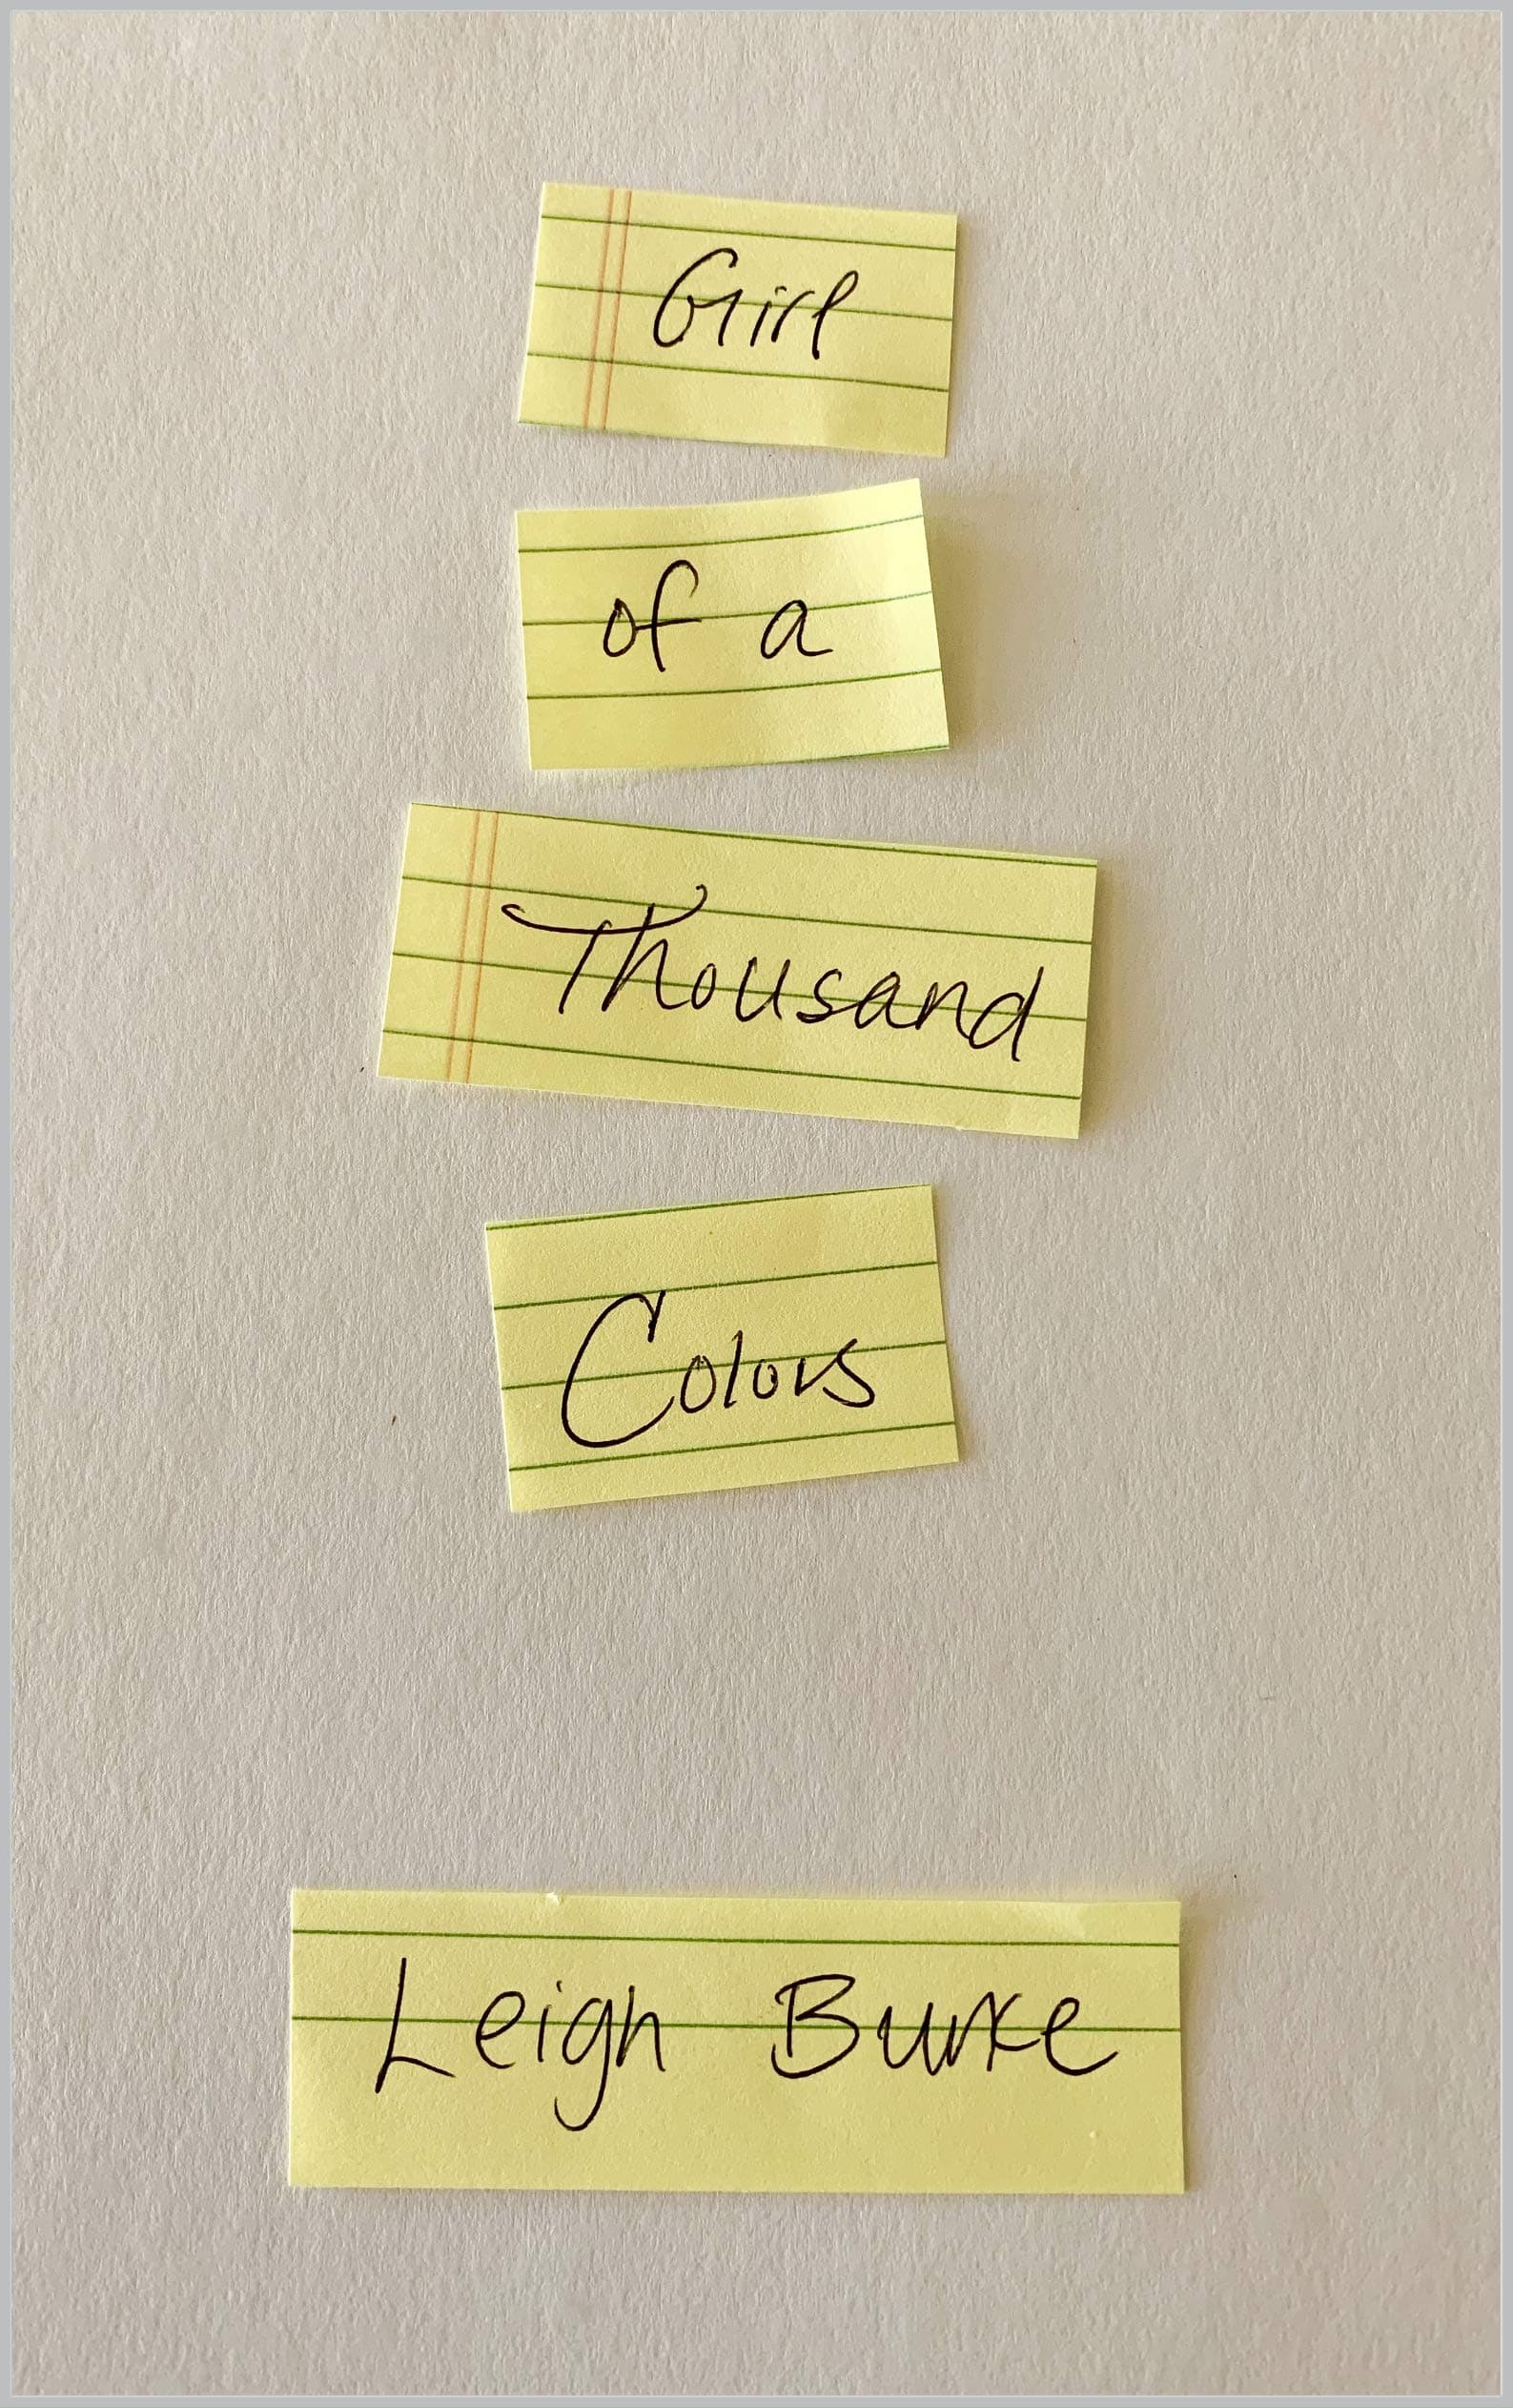 Girl
of a
Thousand
Colors
Leigh Burke